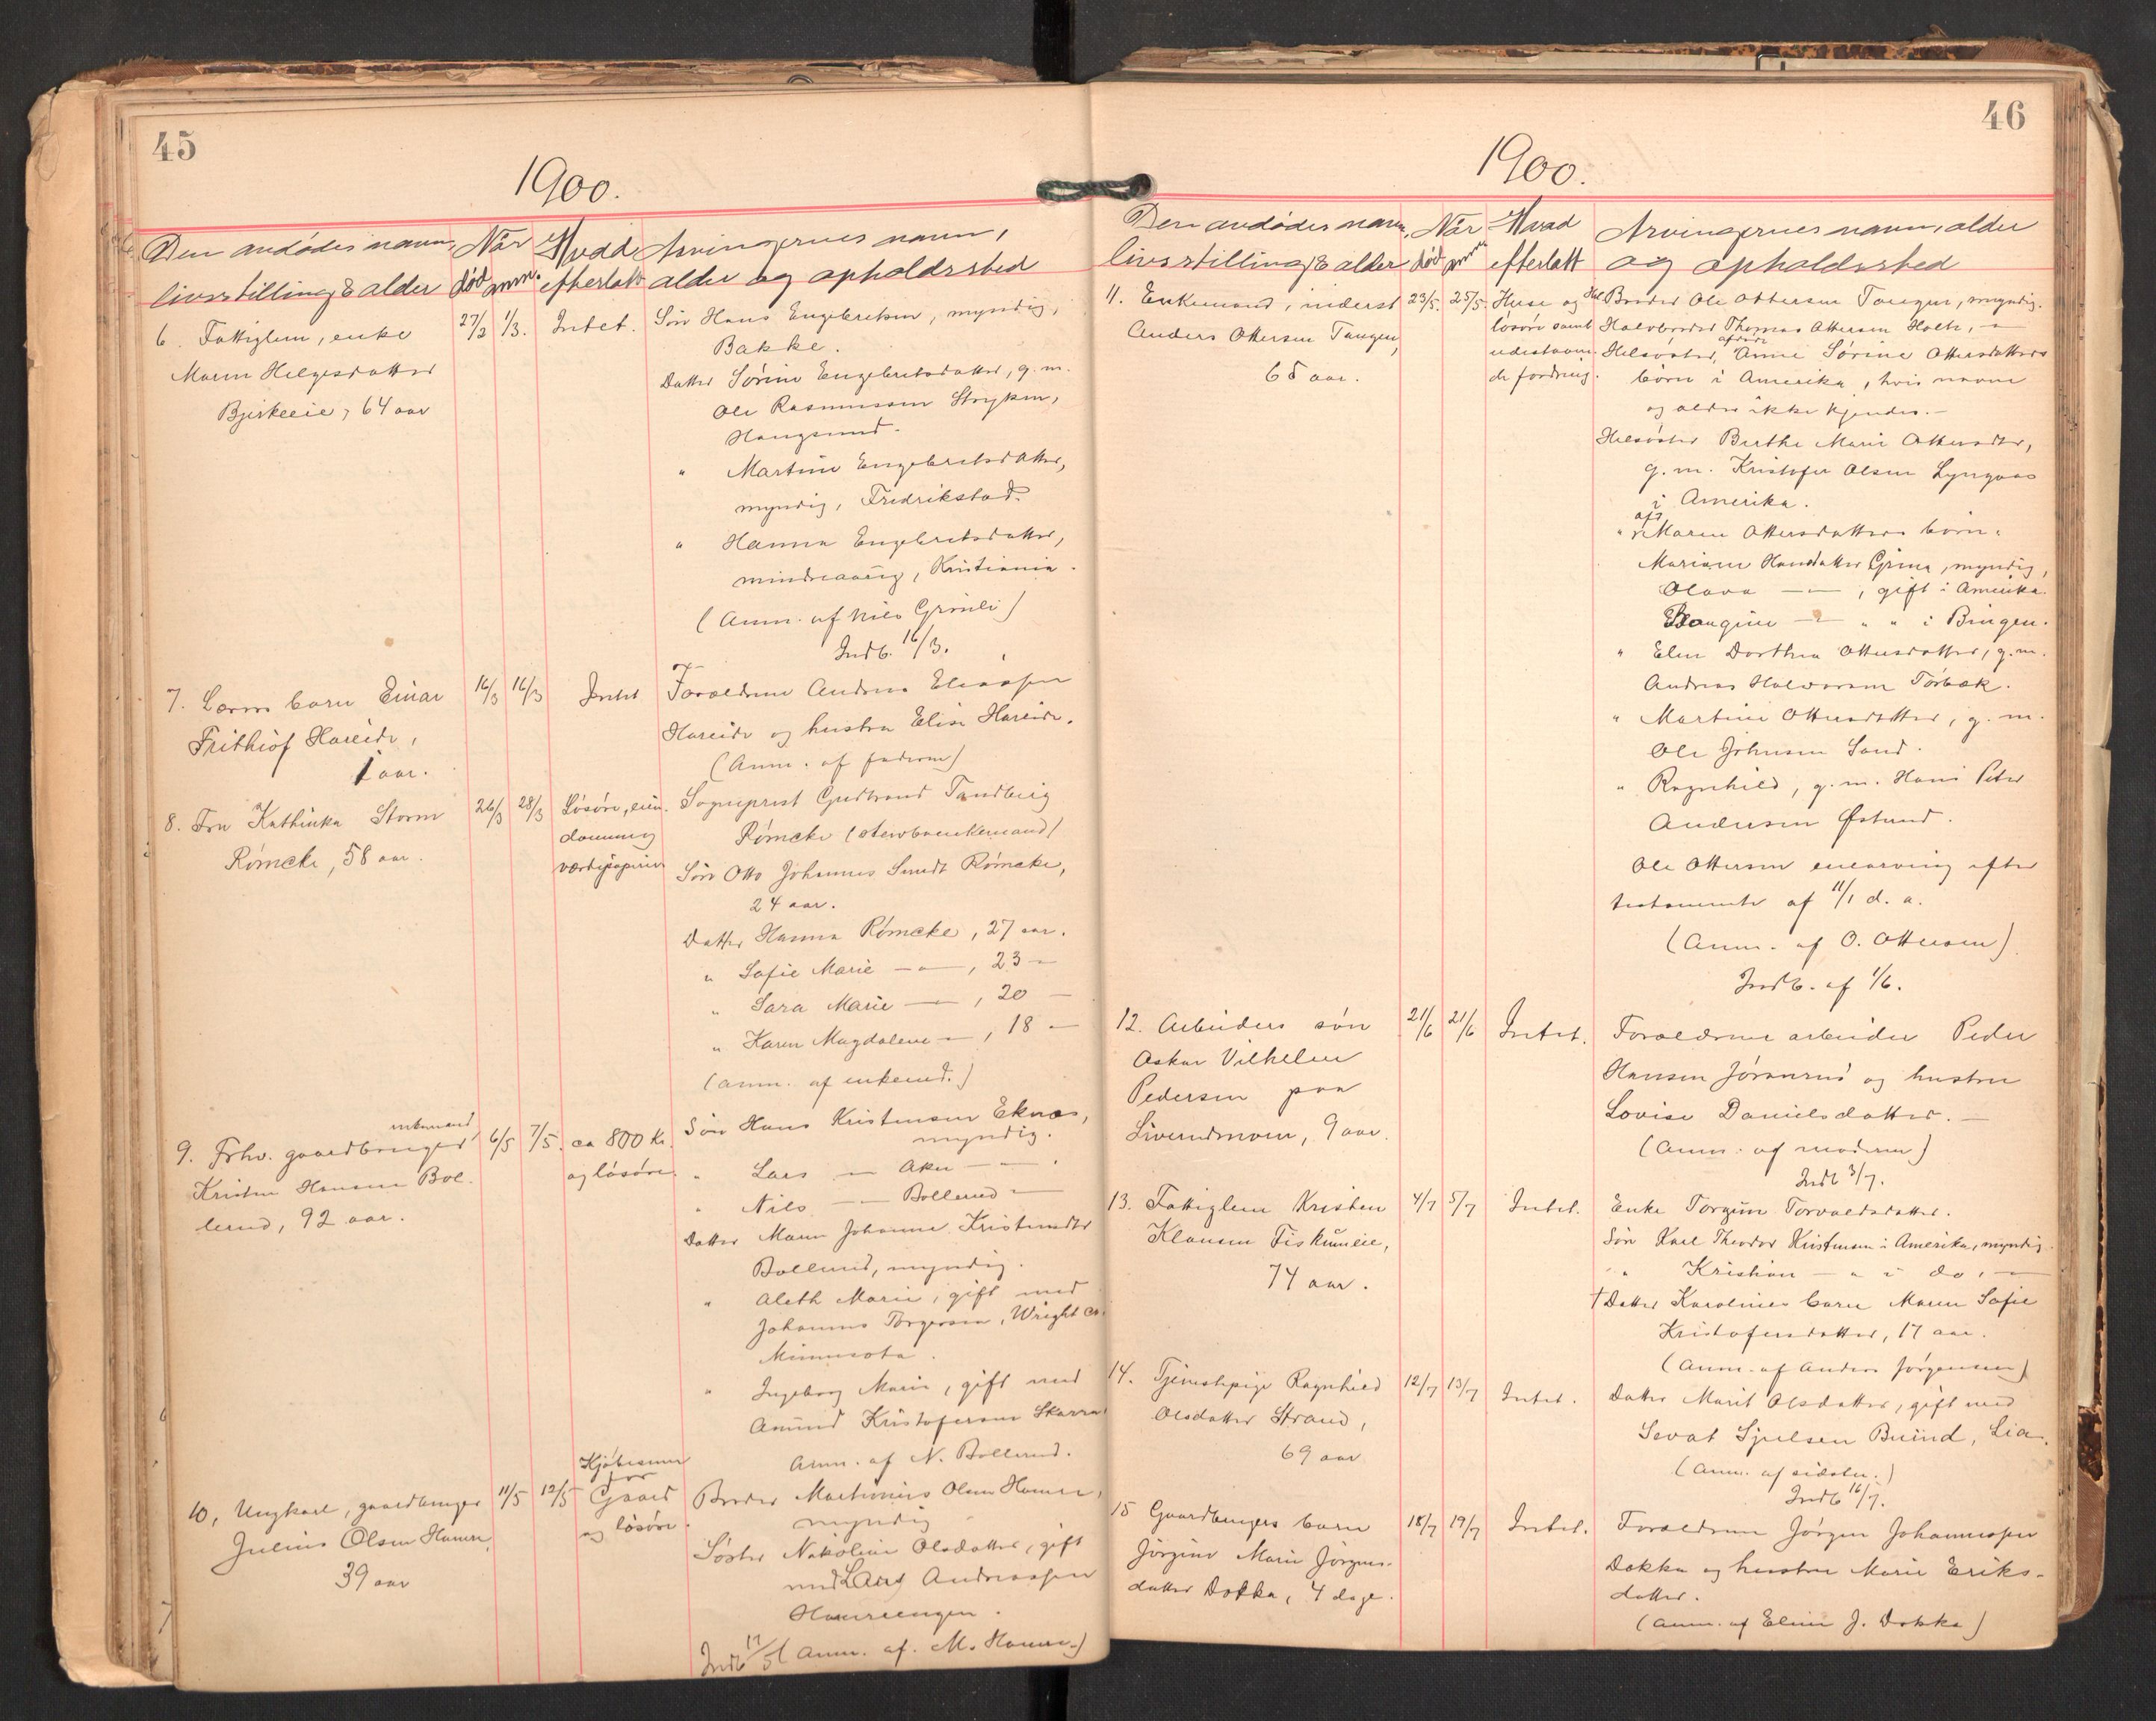 45
1900.
Den avdødes navn,
livsstilling & alder
Når
død anm.
Hvad
efterlatt
Arvingernes navn,
alder og opholdssted
6. Fattiglem, enke
Maren Helgesdatter
Bjerkeeie, 64 aar
27/2
1/3.
Intet.
Søn Hans Engebretsen, myndig,
Bakke.
Datter Sørine Engebretsdatter, g. m.
Ole Rasmussen Stryken,
Haugsund.
" Martine Engebretsdatter,
myndig, Fredrikstad.
" Hanna Engebretsdatter,
mindreaarig, Kristiania.
(Anm. af Nils Grønli)
Indb. 16/3.
7. Lærers barn Einar
Frithiof Hareide,
1 aar.
16/3
16/3
Intet
Forældrene Andreas Eliassen
Hareide og hustru Elise Hareide.
(Anm. af faderen)
8. Fru Kathinka Storm
Rømcke, 58 aar.
26/3
28/3
Løsøre, eien-
dom og
værdipapirer
Sogneprest Gudbrand Tandberg
Rømcke (stervboenkemand)
Søn Otto Johannes Smidt Rømcke,
24 aar.
Datter Hanna Rømcke, 27 aar.
" Sofie Marie —"—, 23 —
" Sara Marie —"—, 20 —
" Karen Magdalene —, 18 —
(anm. af enkemd.)
enkemand
9. Frhv. gaardbruger
Kristen Hansen Bol-
lerud, 92 aar.
6/5
7/5.
ca 800 kr.
og løsøre.
Søn Hans Kristensen Eknes,
myndig.
" Lars — Aker — — .
" Nils — — Bollerud —
Datter Maren Johanne Kristensdtr
Bollerud, myndig.
" Aleth Marie, gift med
Johannes Torgersen, Wright Co.
Minnesota.
" Ingeborg Marie, gift med
Amund Kristofersen Skarra
Anm. af N. Bollerud.
10, Ungkarl, gaardbruger
Julius Olsen Hamre,
39 aar
11/5
12/5
Kjøbesum
for
Gaard
og løsøre.
Broder Martinius Olsen Hamre,
myndig
Søster Nikoline Olsdatter, gift
med Lars Andreassen
Hamreengen.
Indb 17/5 (Anm. af. M. Hamre.)
46
1900.
Den avdødes navn,
livsstilling & alder
Når
død anm
Hvad
efterlatt
Arvingernes navn, alder
og opholdssted
11. Enkemand, inderst
Anders Ottersen Tangen,
65 aar.
23/5.
25/5.
Huse og
løsøre samt
udestaaen-
de fordring.
Hel Broder Ole Ottersen Tangen, myndig.
Halvbroder Thomas Ottersen Holth, —
Helsøster, afdøde Anne Sørine Ottersdatters
børn i Amerika, hvis navne
og alder ikke kjendes.—
Helsøster Berthe Marie Ottersdtr,
g. m. Kristofer Olsen Lyngaas
i Amerika.
" afd Maren Ottersdatters børn:
Mariane Hansdatter Grina, myndig,
Olava —"—, gift i Amerika.
Haugine —"— " " i Bingen.
" Elen Dorthea Ottersdatter, g. m.
Andreas Halvorsen Torbæk.
" Martine Ottersdatter, g. m.
Ole Johnsen Sand.
" Ragnhild, g. m. Hans Peter
Andersen Østund.
Ole Ottersen enearving efter
testamente af 11/1 d. a.
(Anm. af O. Ottersen)
Indb. af 1/6.
12. Arbeiders søn
Oskar Vilhelm
Pedersen paa
Liverudmoen, 9 aar.
21/6
21/6
Intet.
Forældrene arbeider Peder
Hansen Jøranrud og hustru
Lovise Danielsdatter.—
(Anm. af moderen)
Indb 3/7.
13. Fattiglem Kristen
Klausen Fiskumeie,
74 aar.
4/7
5/7
Intet.
Enke Torgine Torvaldsdatter.
Søn Karl Theodor Kristensen i Amerika, myndig.
" Kristian — " i do, —
† Datter Karolines barn Maren Sofie
Kristofersdatter, 17 aar.
(Anm. af Anders Jørgensen)
14. Tjenestepige Ragnhild
Olsdatter Strand,
69 aar
12/7
13/7
Intet.
Datter Marit Olsdatter, gift med
Sevat Sjulsen Buind, Lia.
(Anm. af sidstn.)
Indb 16/7.
15 Gaardbrugers barn
Jørgine Marie Jørgens-
datter Dokka, 4 dage.
18/7
19/7
Intet.
Forældrene Jørgen Johannessen
Dokka og hustru Marie Eriks-
datter.
(Anm. af Eline J. Dokka)